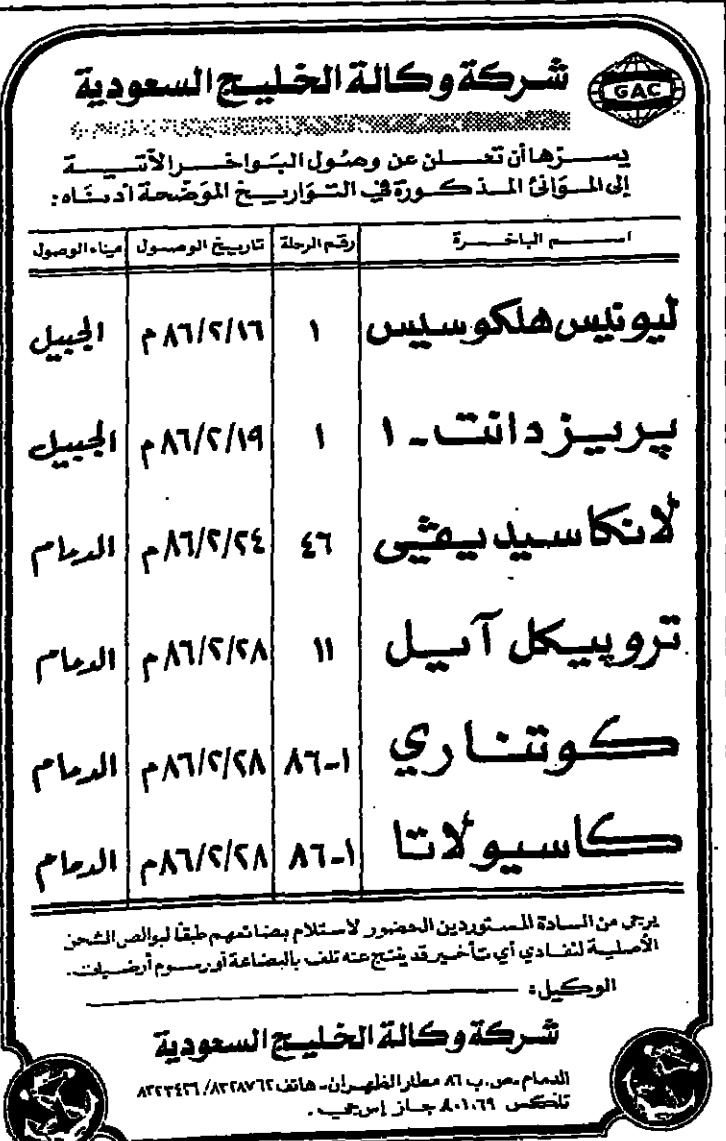 شركة وكالة الخليج السعودية
GAC
يسرها أن تعلن عن وصول البواخر الآتية
إلى الموانئ المذكورة في التواريخ الموضحة أدناه:
اسم الباخرة رقم الرحلة تاريخ الوصول ميناء الوصول
ليونيس هلكوسيس ١ ٨٦/٢/١٦م الجبيل
پريزدانت - ١ ١ ٨٦/٢/١٩م الجبيل
لانكاسيديڤيى ٤٦ ٨٦/٢/٢٤م الدمام
تروپيكل آيل ١١ ٨٦/٢/٢٨م الدمام
كوتناري ١-٨٦ ٨٦/٢/٢٨م الدمام
كاسيولاتا ١-٨٦ ٨٦/٢/٢٨م الدمام
يرجى من السادة المستوردين الحضور لاستلام بضائعهم طبقا لبوالص الشحن
الأصلية لتفادي أي تأخير قد ينتج عنه تلف بالبضاعة أو رسوم أرضيات.
الوكيل:
شركة وكالة الخليج السعودية
الدمام - ص.ب ٨٦ مطار الظهران - هاتف ٨٣٢٨٧٦٢/
تلكس ٨٠١٠٦٩ جاز إس جي .